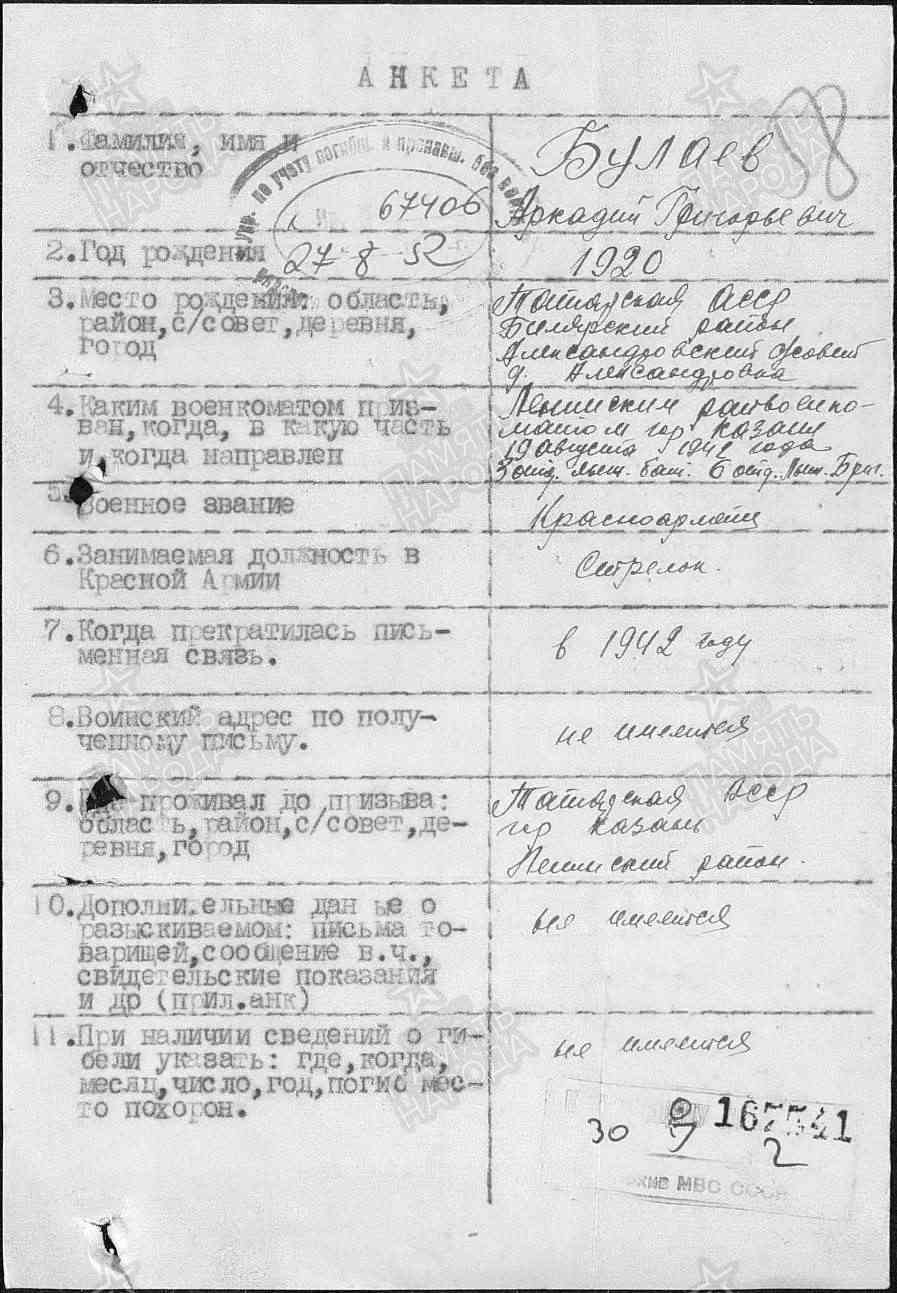 АНКЕТА
88
1.Фамилия, имя и
отчество
Булаев
Аркадий Григорьевич
упр. по учету погибш. и пропавш. без
67406
27 8 52
2.Год рождения
1920
3.Место рождения: область,
район,с/совет,деревня,
город
Татарская АССР
Билярский район
Александровский с/совет
д. Александровка
4.Каким военкоматом приз-
ван,когда, в какую часть
и,когда направлен
Ленинским райвоенко-
матом гор Казани
19 августа 1942 года
3 отд. лыж. бат. 6 отд. лыж. Бриг.
5.Военное звание
Красноармеец
6.Занимаемая должность в
Красной Армии
Стрелок.
7.Когда прекратилась пись-
менная связь.
в 1942 году
8.Воинский адрес по полу-
ченному письму.
не имеется
9.Где проживал до призыва:
область,район,с/совет,де-
ревня,город
Татарская АССР
гор Казань
Ленинский район.
10.Дополнительные данные о
разыскиваемом: письма то-
варищей,сообщение в.ч.,
свидетельские показания
и др (прил.анк)
не имеется
11.При наличии сведений о ги-
бели указать: где,когда,
месяц,число,год,погиб мес-
то похорон.
не имеется
167541
30 9 2
МВС СССР
ПАМЯТЬ
НАРОДА